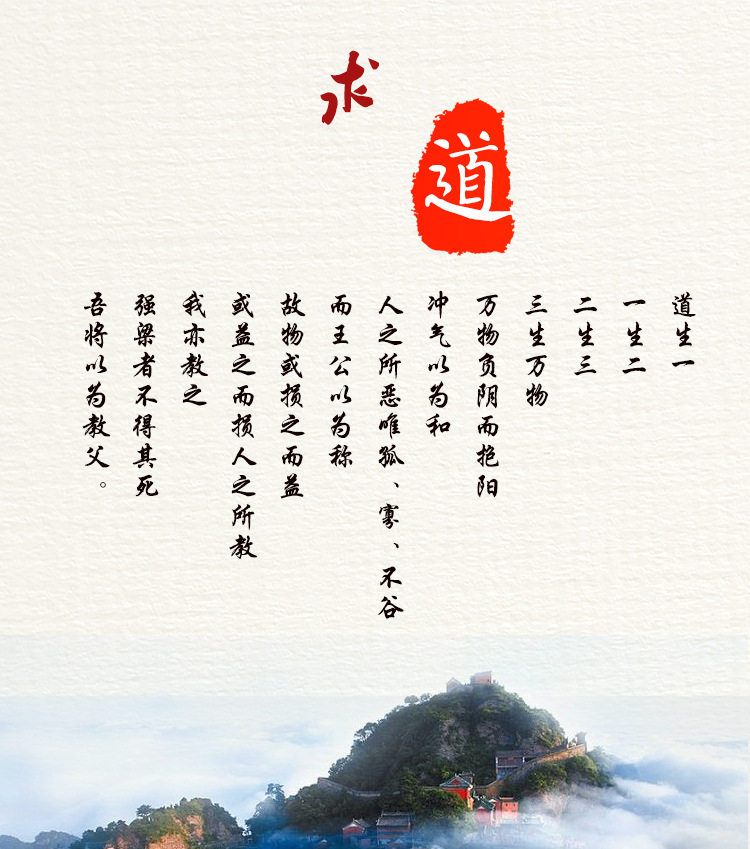 求
道
道生一
一生二
二生三
三生万物
万物负阴而抱阳
冲气以为和
人之所恶唯孤、寡、不谷
而王公以为称
故物或损之而益
或益之而损人之所教
我亦教之
强梁者不得其死
吾将以为教父。